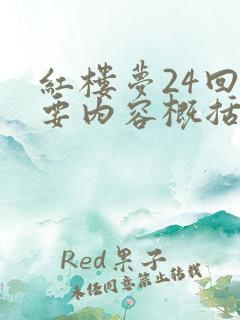 紅樓夢24回
要内容概括
Red果子
未经同意禁止转载